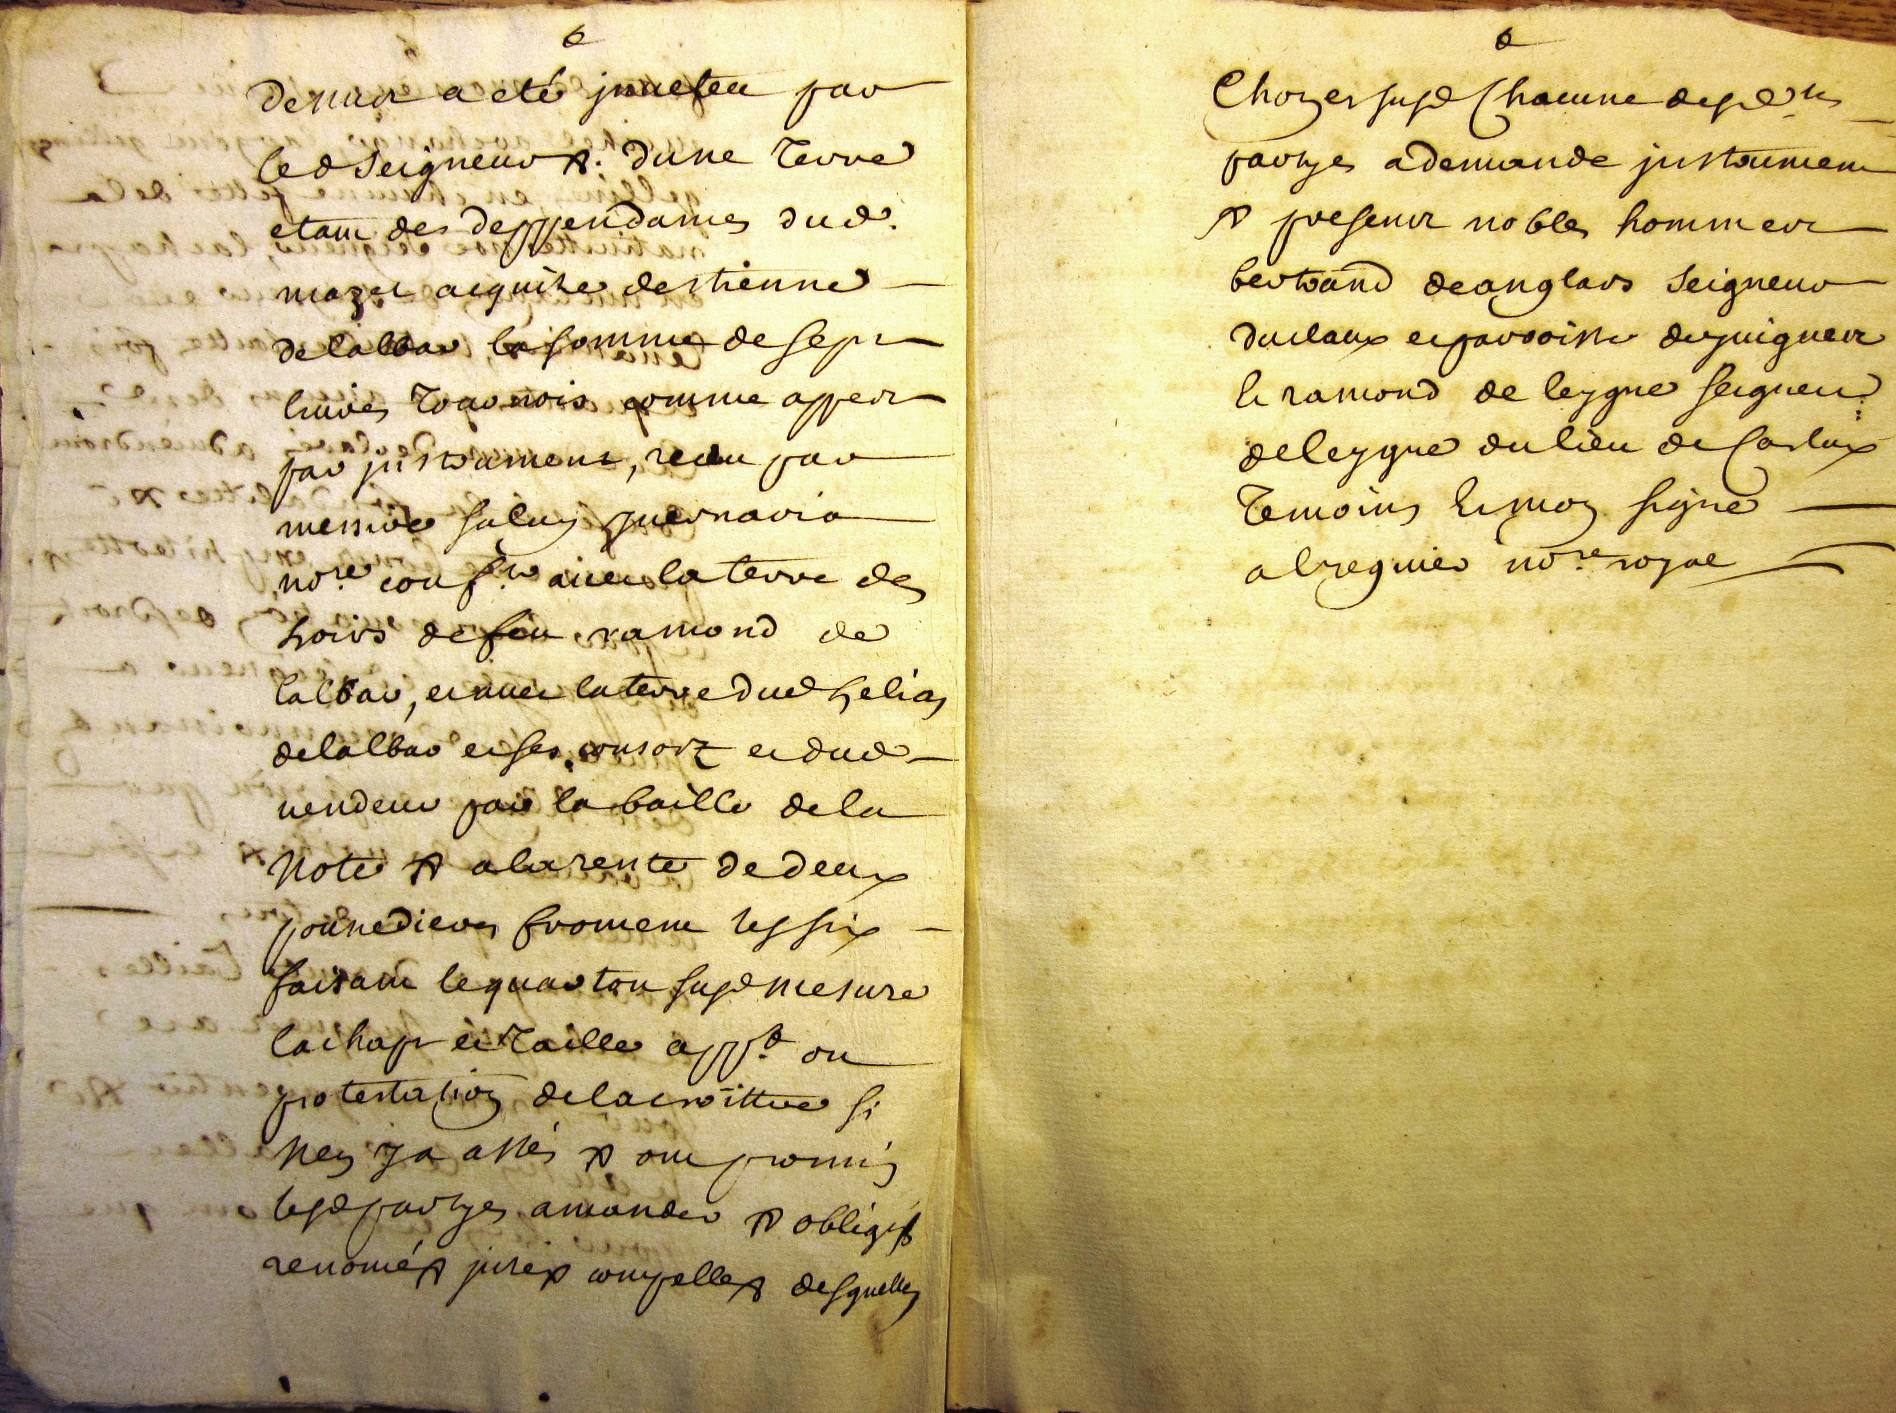 denier a eté jnuestu par
led seigneur &. dune Terre
etant des deppendances dud.
mazet acquise destienne
delalbar la somme de sept
liures Tournois comme appert
par jnstrument, receu par
messire
no.re conf.re auec la terre des
hoirs de feu ramond de
lalbar, et auec la terre dud helias
delalbar et ses consort et dud
uendeur par la baille de la
Note & a la rente de deux
pounedieres froment les six
faisant le quarton susd mesure
lachap et Taille app.t ou
protestation de lacroittre si
Ney ja assés & ont promis
lesd partyes amander & obligé&
renoncé& juré& compelle& desquelles
Chozes susd Chacune desd.
partyes a demandé jnstrument
& present nobles hommes
bertrand deanglars seigneur
duclaux et parroisse
et ramond de leygue seigneur
deleygue du lieu de Carlux
Temoins et moy signé
alreguier no.re royal